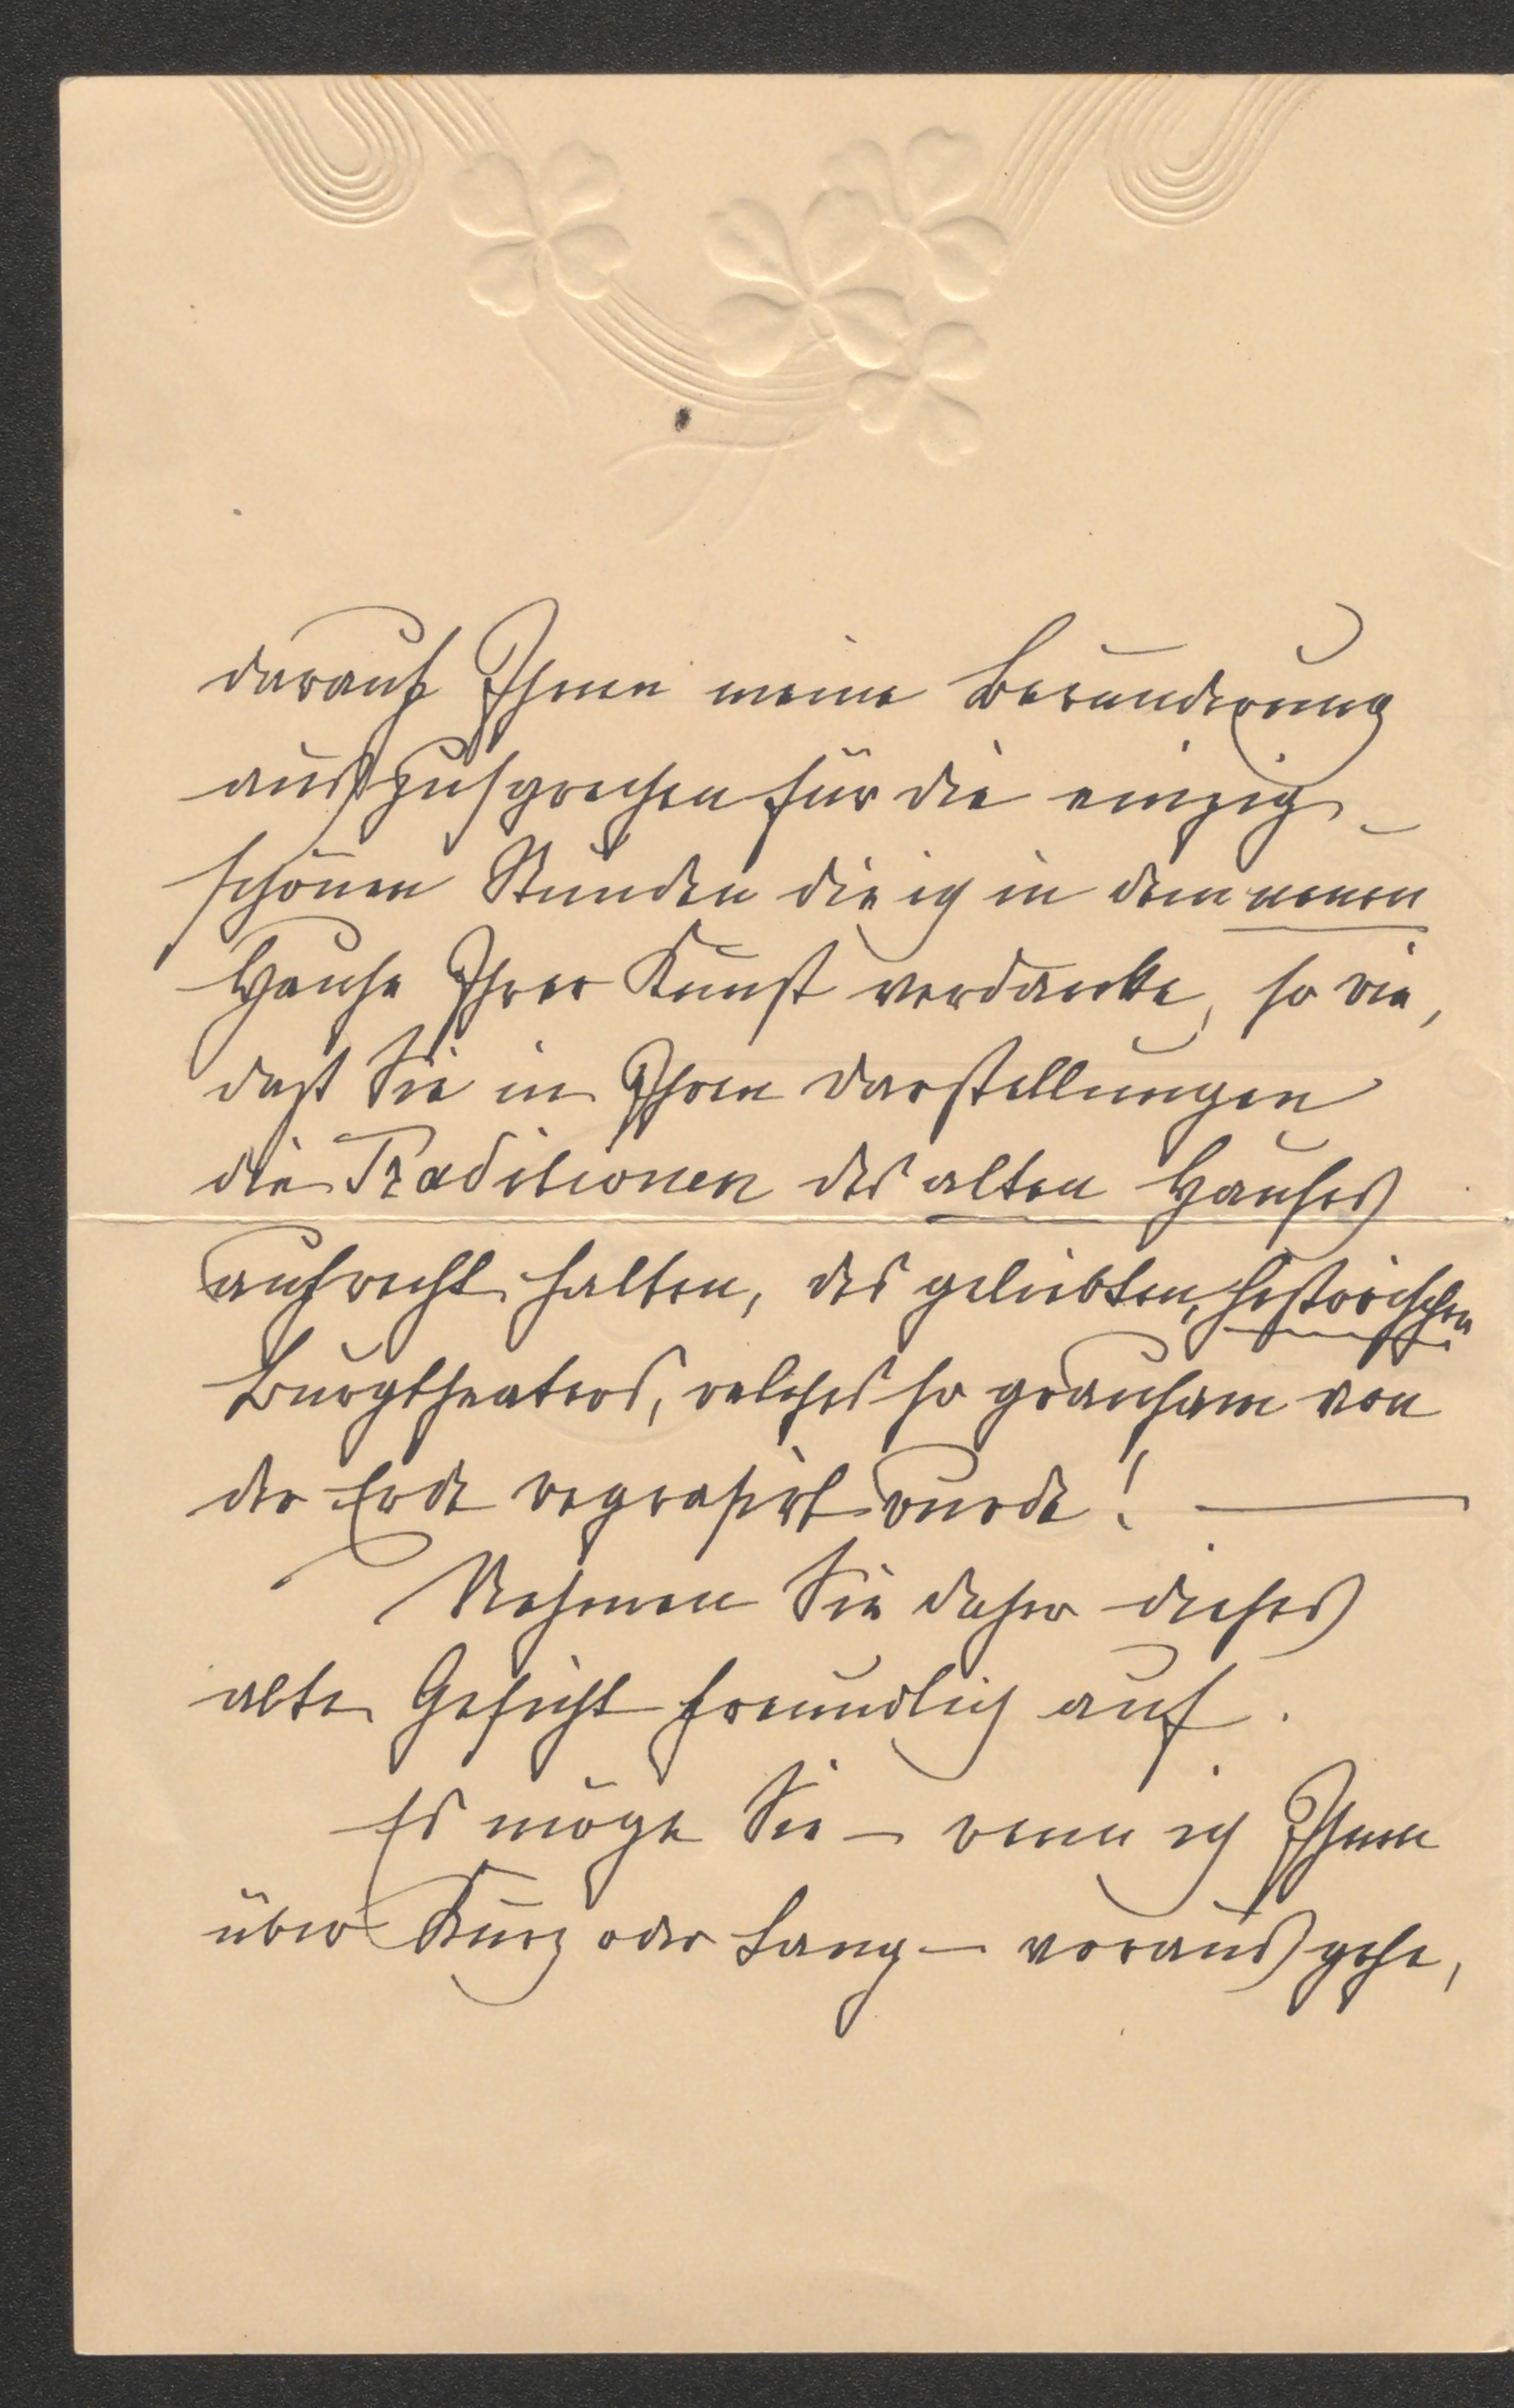 darauf Ihnen meine Bewunderung
auszusprechen für die einzig-
schönen Stunden die ich in dem neuen
Hause Ihrer Kunst verdanke, so wie,
daß Sie in Ihren Darstellungen
die Traditionen des alten Hauses
aufrecht halten, des geliebten, historischen
Burgtheaters, welches so grausam von
der Erde wegrasirt wurde! —
Nehmen Sie daher dieses
alte Gesicht freundlich auf.
Es möge Sie — wenn ich Ihnen
über Kurz oder Lang — voraus gehe,